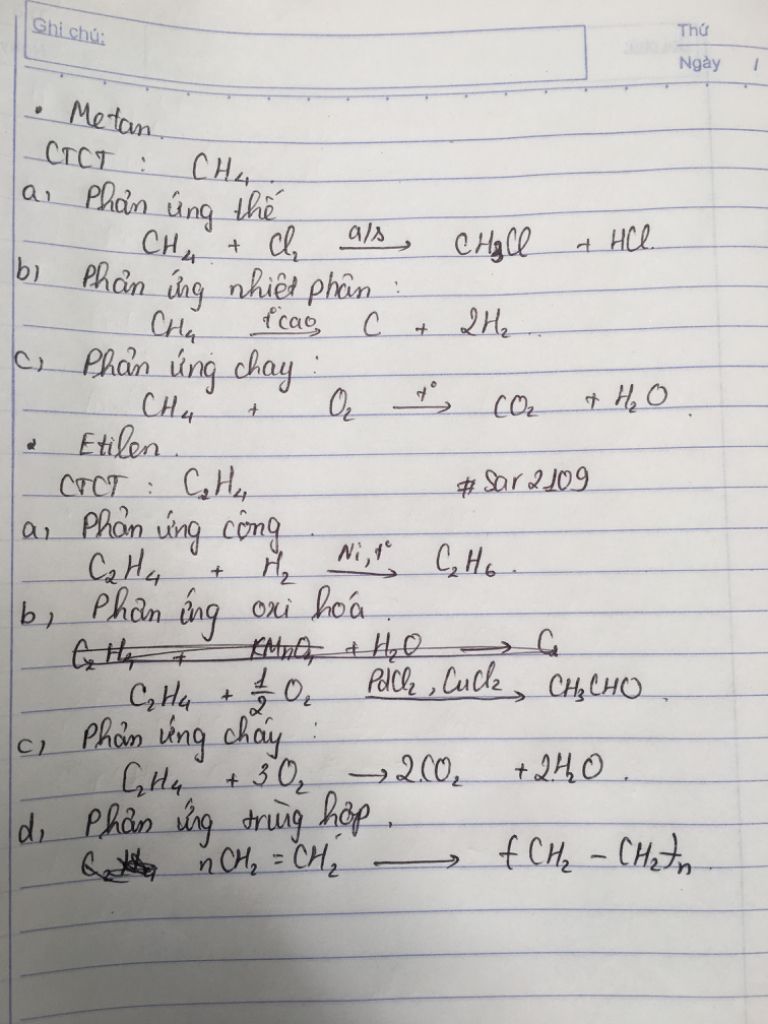 Ghi chú:
Thứ
Ngày /
• Metan.
CTCT : CH₄.
a, Phản ứng thế
CH₄ + Cl₂ a/s → CH₃Cl + HCl
b) Phản ứng nhiệt phân :
CH₄ t°cao → C + 2H₂.
c, Phản ứng chay :
CH₄ + O₂ t° → CO₂ + H₂O.
• Etilen.
CTCT : C₂H₄ #Sar2109
a, Phản ứng công.
C₂H₄ + H₂ Ni, t° → C₂H₆.
b, Phản ứng oxi hoá.
C₂H₄ + KMnO₄ + H₂O → C
C₂H₄ + 1/2 O₂ PdCl₂, CuCl₂ → CH₃CHO.
c, Phản ứng cháy :
C₂H₄ + 3O₂ → 2CO₂ + 2H₂O.
d, Phản ứng trùng hợp.
nCH₂ = CH₂ → (CH₂ – CH₂)n